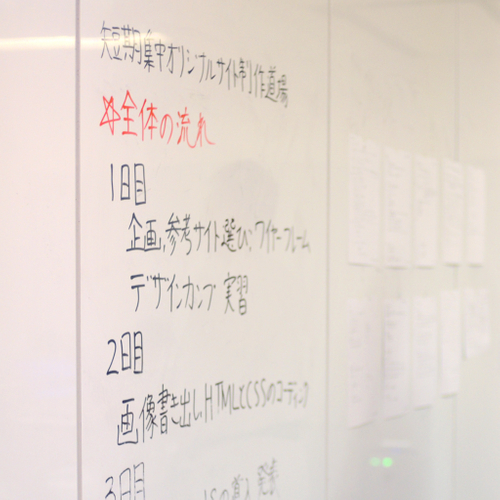 短期集中オリジナルサイト制作道場
☆全体の流れ
1日目
企画,参考サイト選び,ワイヤーフレーム
デザインカンプ 実習
2日目
画像書き出し,HTMLとCSSのコーディング
3日目 発表